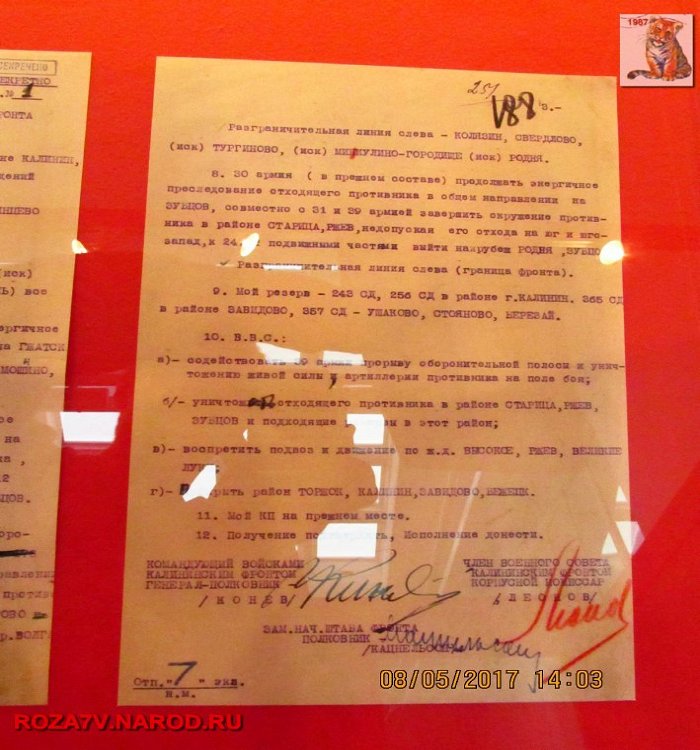 СЕКРЕТНО
ФРОНТА
КАЛИНИН,
(иск)
все
на ГЖАТСК
на
251
188 3.-
Разграничительная линия слева - КОЛЯЗИН, СВЕРДЛОВО,
(иск) ТУРГИНОВО, (иск) МИКУЛИНО-ГОРОДИЩЕ (иск) РОДНЯ.
8. 30 армия ( в прежнем составе) продолжать энергичное
преследование отходящего противника в общем направлении на
ЗУБЦОВ, совместно с 31 и 39 армией завершить окружение против-
ника в районе СТАРИЦА,РЖЕВ,недопуская его отхода на юг и юго-
запад,к подвижными частями выйти нарубеж РОДНЯ ,ЗУБЦОВ
Разграничительная линия слева (граница фронта).
9. Мой резерв - 243 СД, 256 СД в районе г.КАЛИНИН. 365 СД
в районе ЗАВИДОВО, 357 СД - УШАКОВО, СТОЯНОВО, БЕРЕЗАЙ.
10. В.В.С.:
а)- содействовать 39 армии прорыву оборонительной полосы и унич-
тожению живой силы и артиллерии противника на поле боя;
б/- отходящего противника в районе СТАРИЦА,РЖЕВ,
ЗУБЦОВ и подходящие в этот район;
в)- воспретить подвоз и движение по ж.д. ВЫСОКОЕ, РЖЕВ, ВЕЛИКИЕ
ЛУКИ;
г)- район ТОРЖОК, КАЛИНИН,ЗАВИДОВО,БЕЖЕЦК.
11. Мой КП на прежнем месте.
12. Получение подтвердить, Исполнение донести.
КОМАНДУЮЩИЙ ВОЙСКАМИ
КАЛИНИНСКИМ ФРОНТОМ
ГЕНЕРАЛ-ПОЛКОВНИК
/ КОНЕВ/
ЧЛЕН ВОЕННОГО СОВЕТА
КАЛИНИНСКИМ ФРОНТОМ
КОРПУСНОЙ КОМИССАР
/ ЛЕОНОВ/
ЗАМ.НАЧ.ШТАБА ФРОНТА
ПОЛКОВНИК
/КАЦНЕЛЬСОН/
Отп."7" экз.
н.м.
1987
08/05/2017 14:03
ROZA7V.NAROD.RU